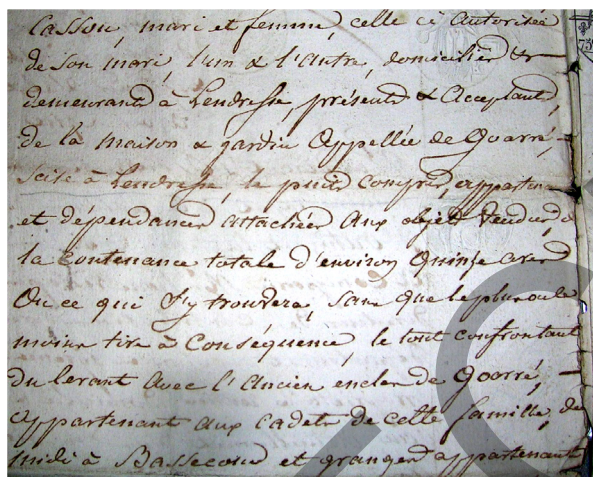 Casson, mari et femme, celle ci autorisée
de son mari, l'un & l'autre, domiciliés &
demeurants à Lendresse, présents & acceptants,
de la maison & jardin appellée de Goarré,
scise à Lendresse, le puits compris, appartenances
et dépendances attachées aux objets vendus, de
la contenance totale d'environ quinze ares
ou ce qui s'y trouvera, sans que le plus ou le
moins tire à conséquence, le tout confrontant
du levant avec l'ancien enclos de Goorré,
appartenant aux cadets de cette famille, de
midi à Bassecour et granges appartenant